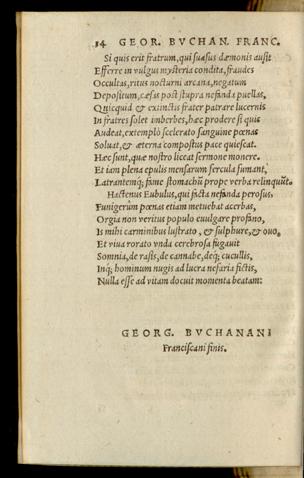 14 GEOR. BVCHAN. FRANC.
Si quis erit fratrum, qui suasus dæmonis ausit
Efferre in vulgus mysteria condita, fraudes
Occultas, ritus nocturni arcana, negatum
Depositum, cæsas post stupra nefanda puellas,
Quicquid & extinctis frater patrare lucernis
In fratres solet imberbes, hæc prodere si quis
Audeat, extemplò scelerato sanguine pœnas
Soluat, & æterna compostus pace quiescat.
Hæc sunt, quæ nostro liceat sermone monere.
Et iam plena epulis mensarum fercula fumant,
Latrantemq; fame stomachũ prope verba relinquũt.
Hactenus Eubulus, qui ficta nefanda perosus,
Funigerûm pœnas etiam metuebat acerbas,
Orgia non veritus populo euulgare profano,
Is mihi carminibus lustrato, & sulphure, & ouo,
Et viua rorato vnda cerebrosa fugauit
Somnia, de rasis, de cannabe, deq; cucullis,
Inq; hominum nugis ad lucra nefaria fictis,
Nulla esse ad vitam docuit momenta beatam:
GEORG. BVCHANANI
Franciscani finis.